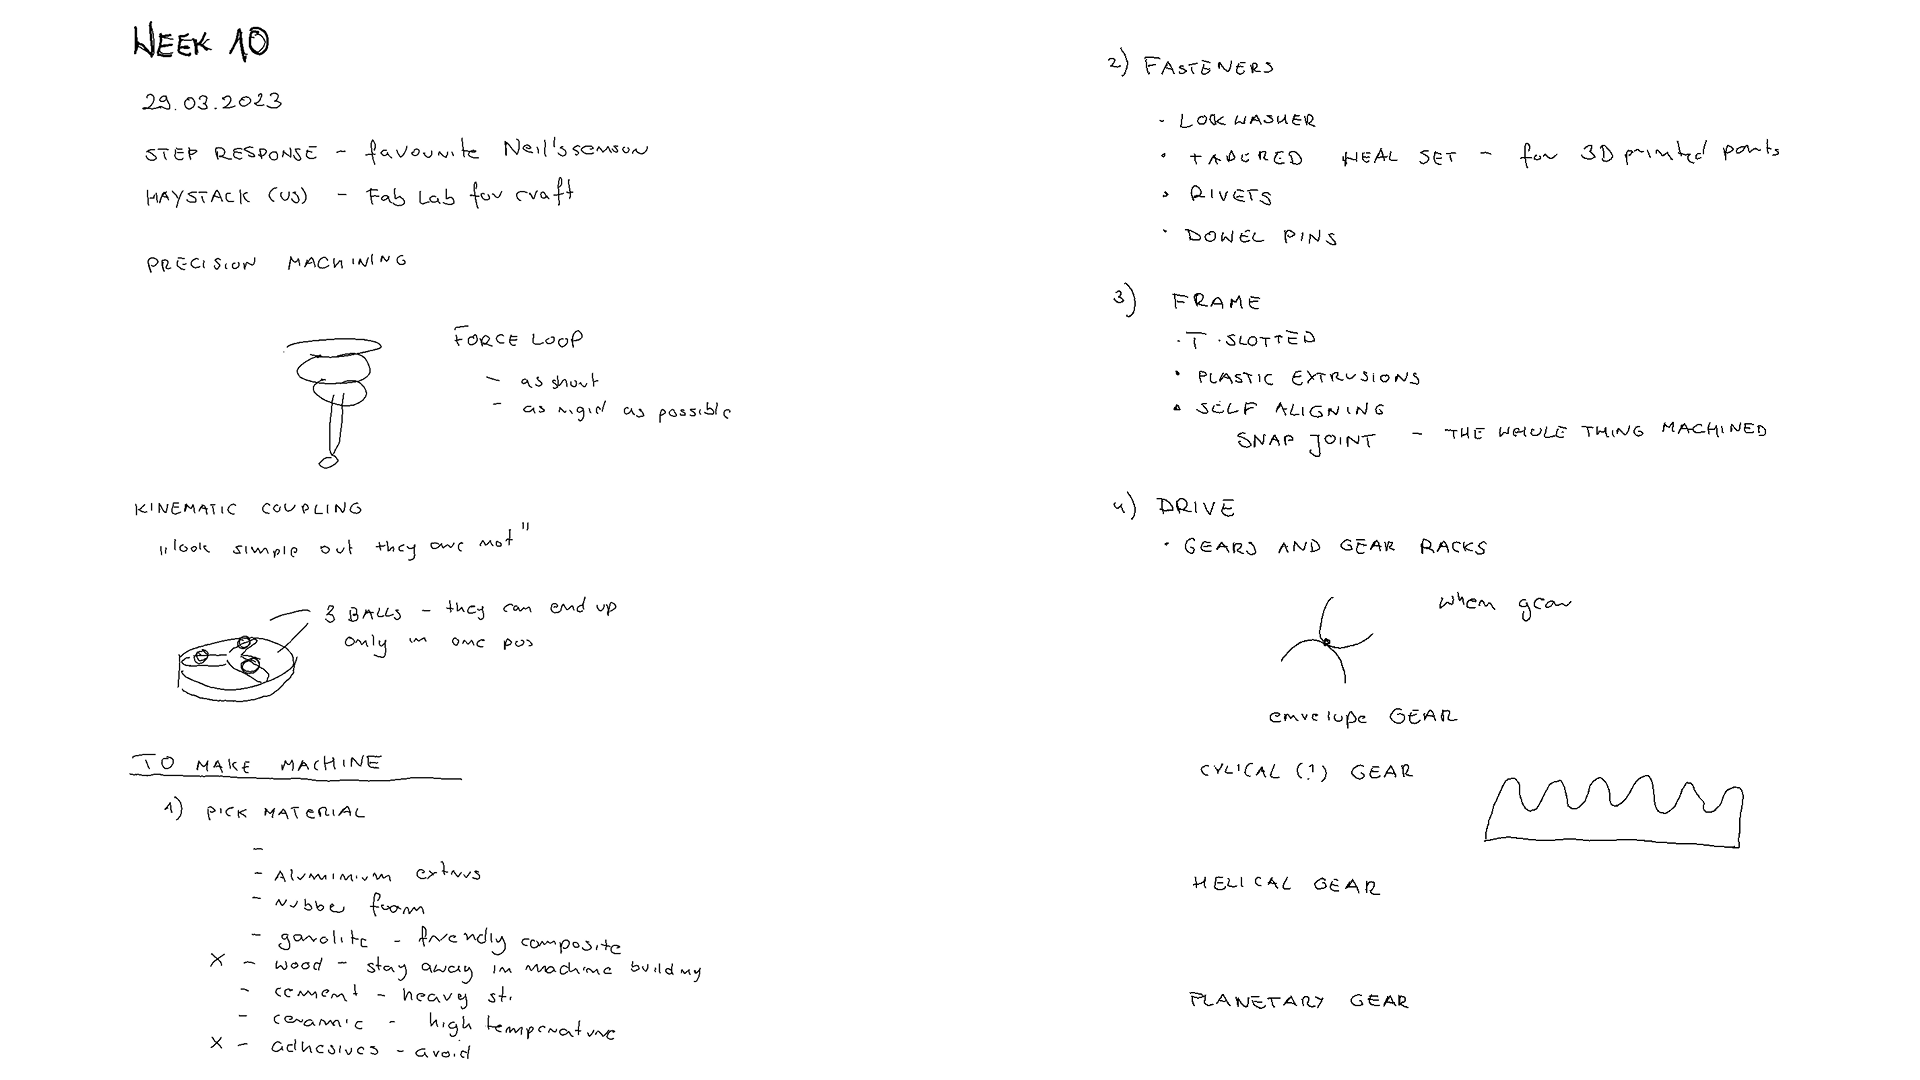 WEEK 10
29.03.2023
STEP RESPONSE - favourite Neil's sensor
HAYSTACK (US) - Fab Lab for craft
PRECISION MACHINING
FORCE LOOP
- as short
- as rigid as possible
KINEMATIC COUPLING
"look simple but they are not"
3 BALLS - they can end up
only in one pos
TO MAKE MACHINE
1) PICK MATERIAL
-
- Aluminium extrus
- rubber foam
- garolite - friendly composite
X - wood - stay away in machine building
- cement - heavy st.
- ceramic - high temperature
X - adhesives - avoid
2) FASTENERS
• LOCK WASHER
• TAPERED HEAL SET - for 3D printed parts
• RIVETS
• DOWEL PINS
3) FRAME
• T-SLOTTED
• PLASTIC EXTRUSIONS
• SELF ALIGNING
SNAP JOINT - THE WHOLE THING MACHINED
4) DRIVE
• GEARS AND GEAR RACKS
when gear
envelope GEAR
CYLICAL (?) GEAR
HELICAL GEAR
PLANETARY GEAR